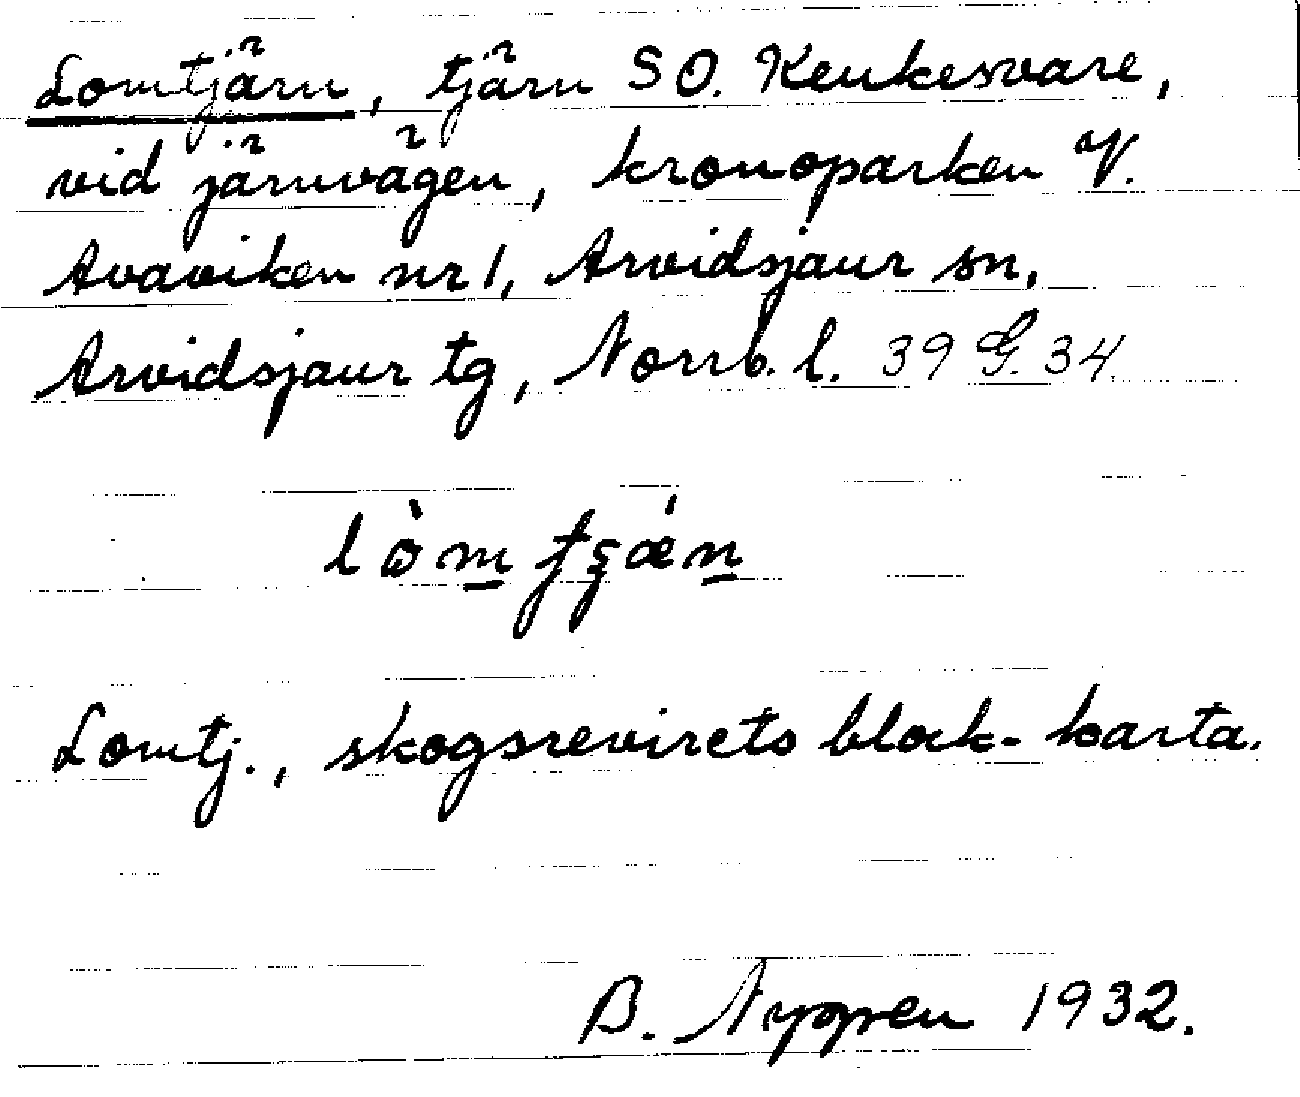 Lomtjärn, tjärn SO. Keukesvare,
vid järnvägen, kronoparken V.
Avaviken nr 1, Arvidsjaur sn,
Arvidsjaur tg, Norrb. l. 39 G. 34.
Lomtj., skogsrevirets block-karta.
B. 1932.